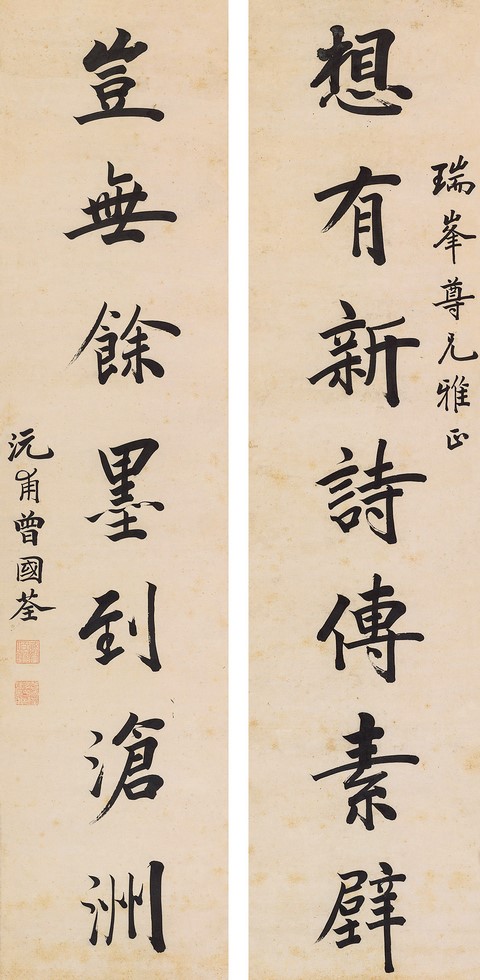 瑞峯尊兄雅正
想有新詩傳素壁
豈無餘墨到滄洲
沅甫曾國荃